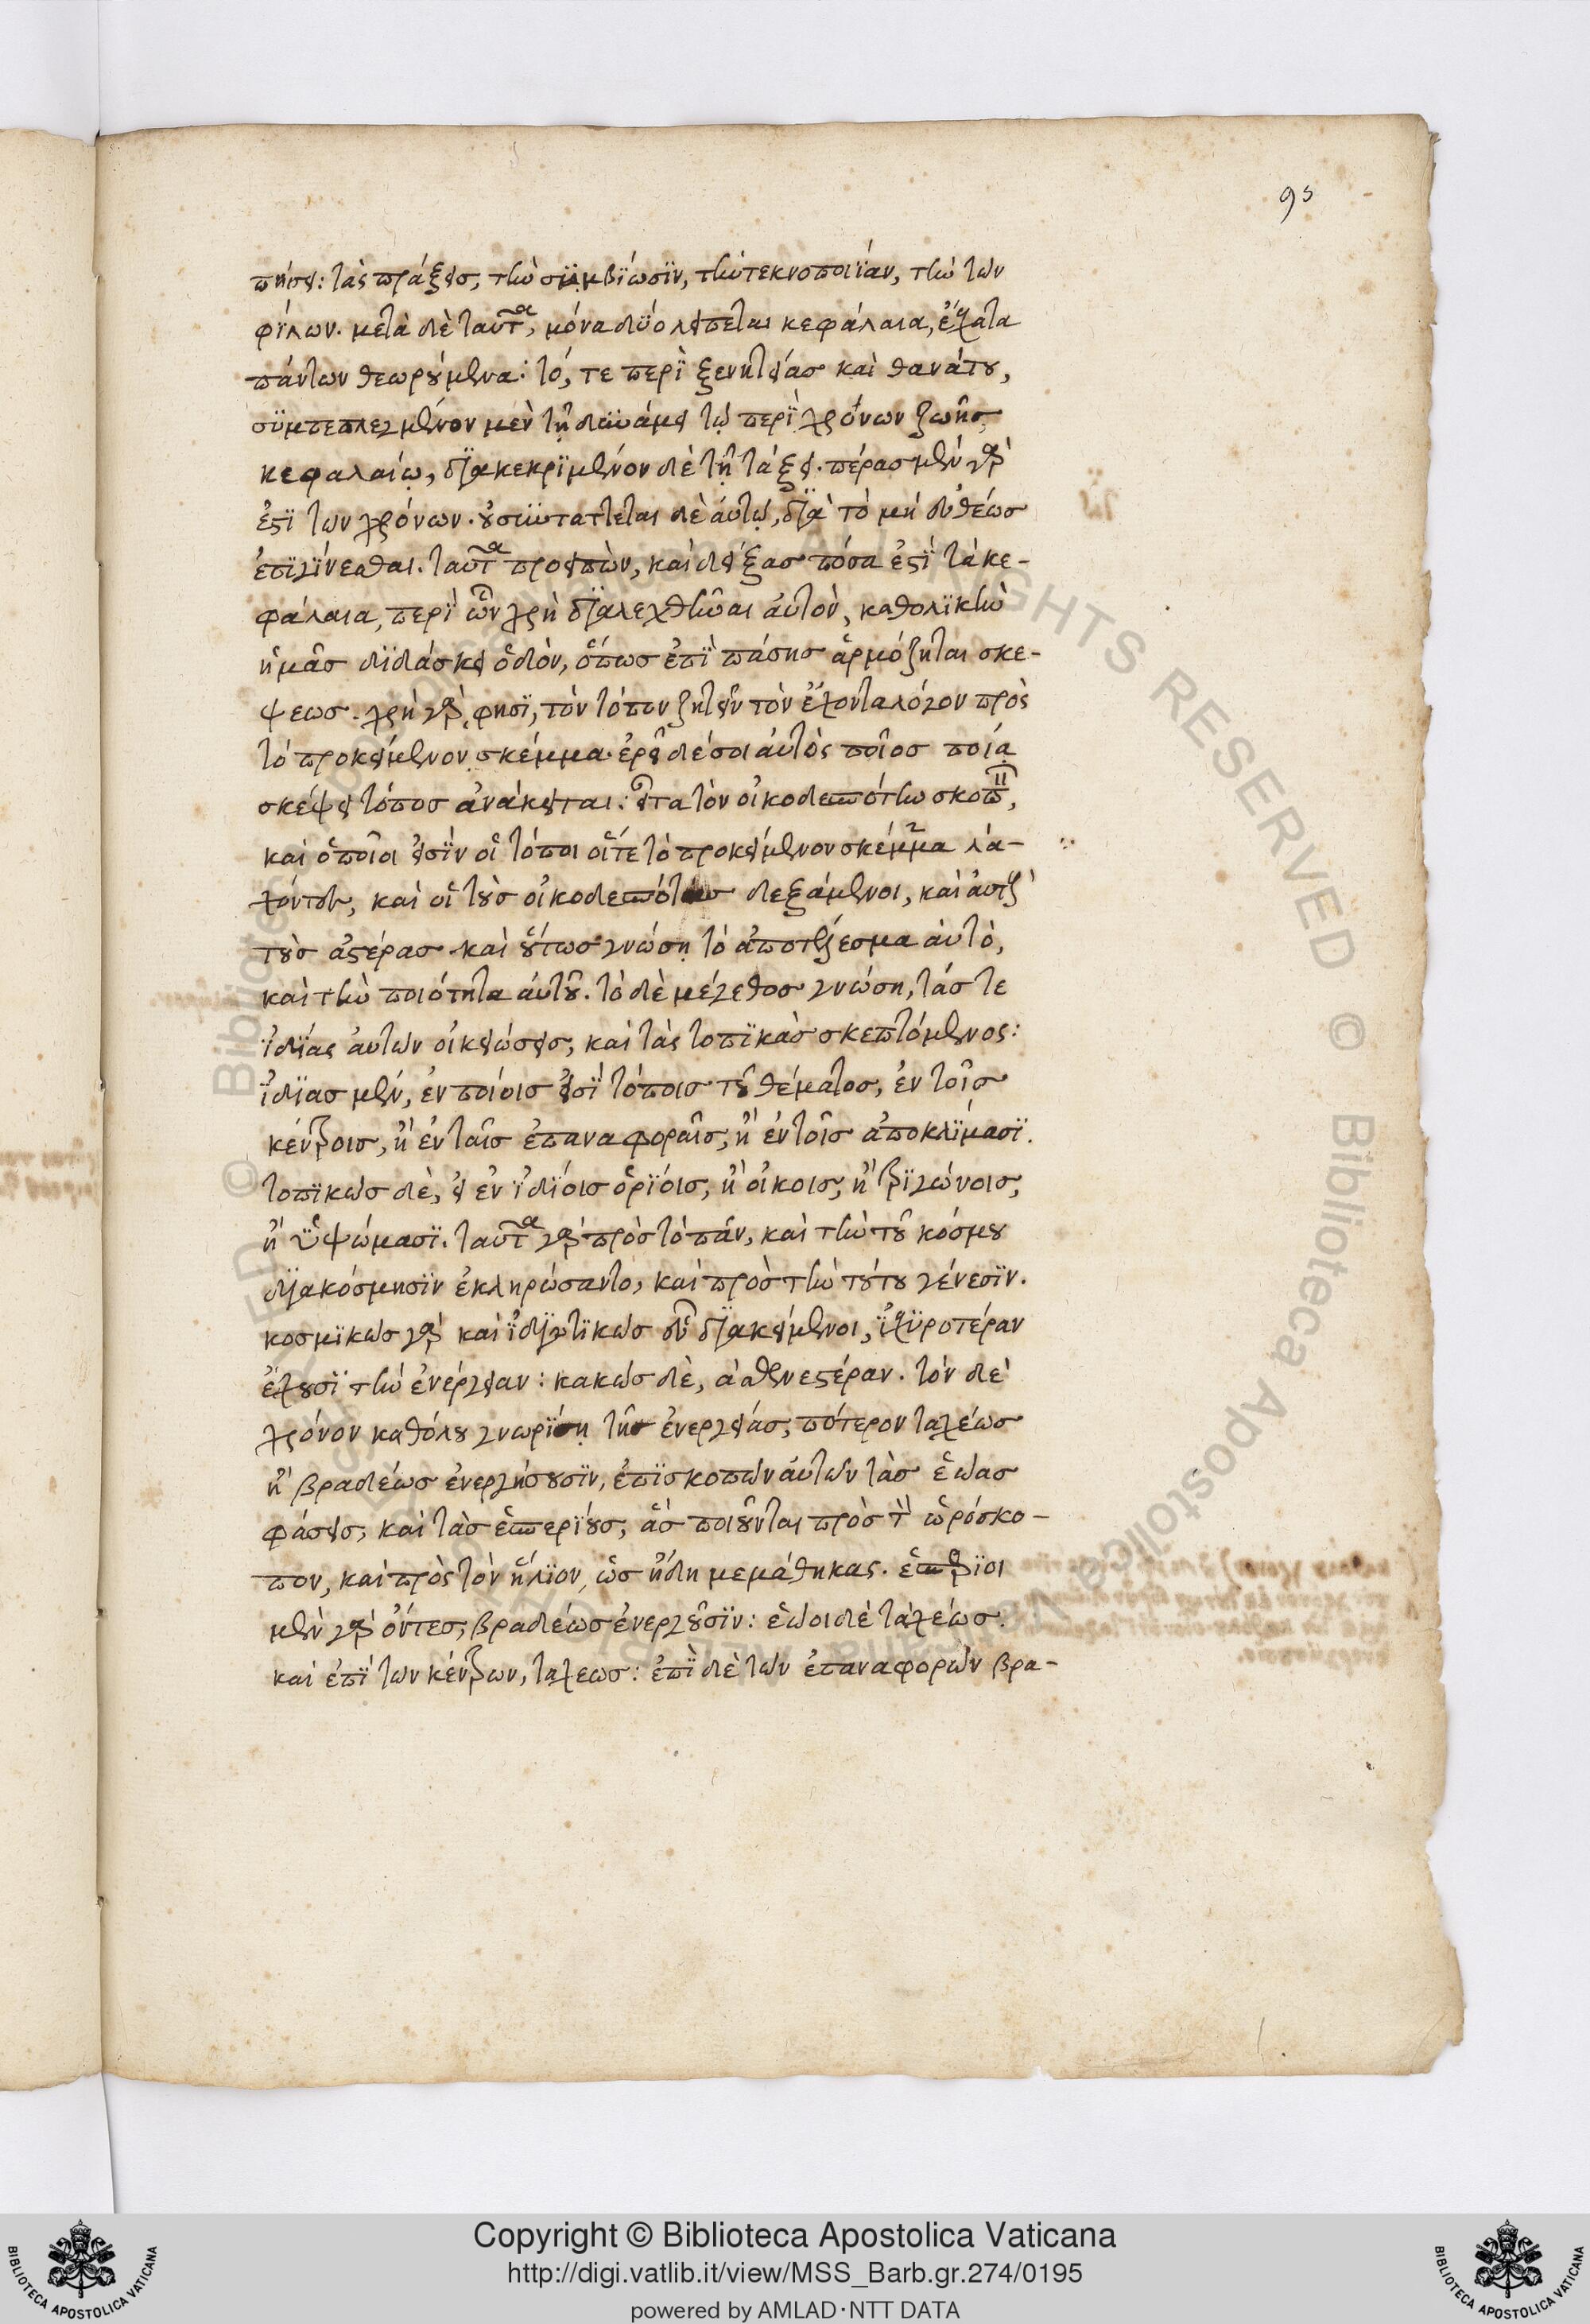 95
πήσει: τὰς πράξεις, τὴν συμβίωσιν, τὴν τεκνοποιίαν, τὴν τῶν
φίλων. μετὰ δὲ ταῦτα, μόνα δύο λείπεται κεφάλαια, ἔσχατα
πάντων θεωρούμενα: τό, τε περὶ ξενητείας καὶ θανάτου,
συμπεπλεγμένον μὲν τῇ δυνάμει τῷ περὶ χρόνων ζωῆς
κεφαλαίῳ, διακεκριμένον δὲ τῇ τάξει. πέρας μὲν γὰρ
ἐστὶ τῶν χρόνων. οὐ συντάττεται δὲ αὐτῷ, διὰ τὸ μὴ εὐθέως
ἐπιγίνεσθαι. ταῦτα προειπὼν, καὶ δείξας πόσα ἐστὶ τὰ κε-
φάλαια, περὶ ὧν χρὴ διαλεχθῆναι αὐτὸν, καθολικὴν
ἡμᾶς διδάσκει ὁδὸν, ὅπως ἐπὶ πάσης ἁρμόζηται σκέ-
ψεως. χρὴ γὰρ, φησὶ, τὸν τόπον ζητεῖν τὸν ἔχοντα λόγον πρὸς
τὸ προκείμενον σκέμμα. ἐρεῖ δέ σοι αὐτὸς ποῖος ποίᾳ
σκέψει τόπος ἀνάκειται: εἶτα τὸν οἰκοδεσπότην σκοπεῖν,
καὶ ὁποῖοι εἰσὶν οἱ τόποι οἵτε τὸ προκείμενον σκέμμα λα-
χόντες, καὶ οἱ τοὺς οἰκοδεσπότας δεξάμενοι, καὶ αὐτοὺς
τοὺς ἀστέρας. καὶ οὕτως γνώσῃ τὸ ἀποτέλεσμα αὐτὸ,
καὶ τὴν ποιότητα αὐτοῦ. τὸ δὲ μέγεθος γνώσῃ, τάς τε
ἰδίας αὐτῶν οἰκειώσεις, καὶ τὰς τοπικὰς σκεπτόμενος:
ἰδίας μὲν, ἐν ποίοις εἰσὶ τόποις τοῦ θέματος, ἐν τοῖς
κέντροις, ἢ ἐν ταῖς ἐπαναφοραῖς, ἢ ἐν τοῖς ἀποκλίμασι.
τοπικῶς δὲ, εἰ ἐν ἰδίοις ὁρίοις, ἢ οἴκοις, ἢ τριγώνοις,
ἢ ὑψώμασι. ταῦτα γὰρ πρὸς τὸ πᾶν, καὶ τὴν τοῦ κόσμου
διακόσμησιν ἐκληρώσαντο, καὶ πρὸς τὴν τούτου γένεσιν.
κοσμικῶς γὰρ καὶ ἰδιωτικῶς εὖ διακείμενοι, ἰσχυροτέραν
ἔχουσι τὴν ἐνέργειαν: κακῶς δὲ, ἀσθενεστέραν. τὸν δὲ
χρόνον καθόλου γνωρίσῃ τῆς ἐνεργείας, πότερον ταχέως
ἢ βραδέως ἐνεργήσουσιν, ἐπισκοπῶν αὐτῶν τὰς ἑῴας
φάσεις, καὶ τὰς ἑσπερίους, ἃς ποιοῦνται πρὸς τὸν ὡρόσκο-
πον, καὶ πρὸς τὸν ἥλιον, ὡς ἤδη μεμάθηκας. ἑσπέριοι
μὲν γὰρ ὄντες, βραδέως ἐνεργοῦσιν: ἑῷοι δὲ ταχέως.
καὶ ἐπὶ τῶν κέντρων, ταχέως: ἐπὶ δὲ τῶν ἐπαναφορῶν βρα-
Copyright © Biblioteca Apostolica Vaticana
http://digi.vatlib.it/view/MSS_Barb.gr.274/0195
powered by AMLAD·NTT DATA